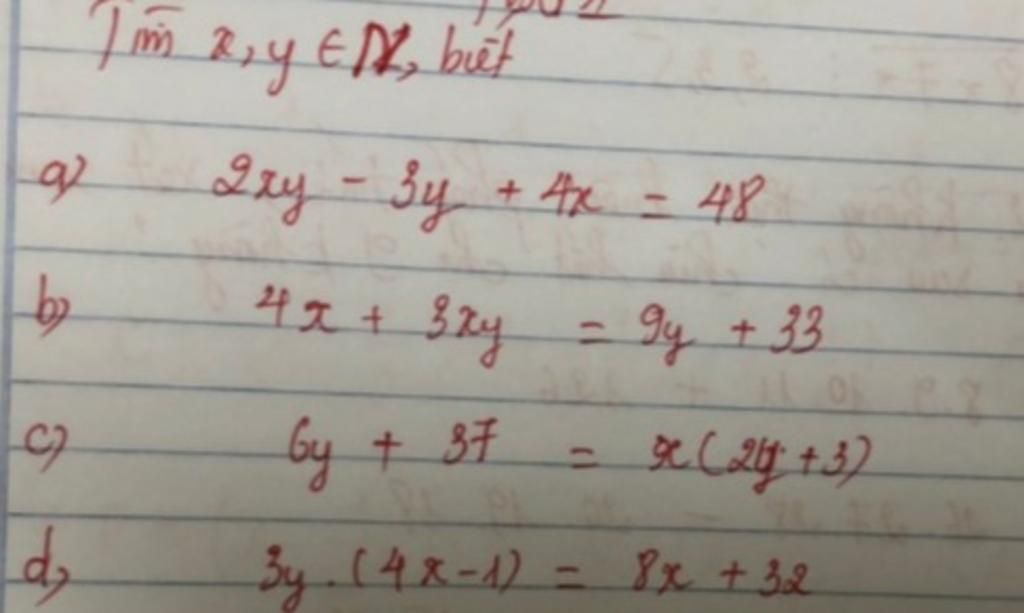 Tìm x, y ∈ N, biết
a) 2xy - 3y + 4x = 48
b) 4x + 3xy = 9y + 33
c) 6y + 37 = x(2y + 3)
d) 3y . (4x - 1) = 8x + 32